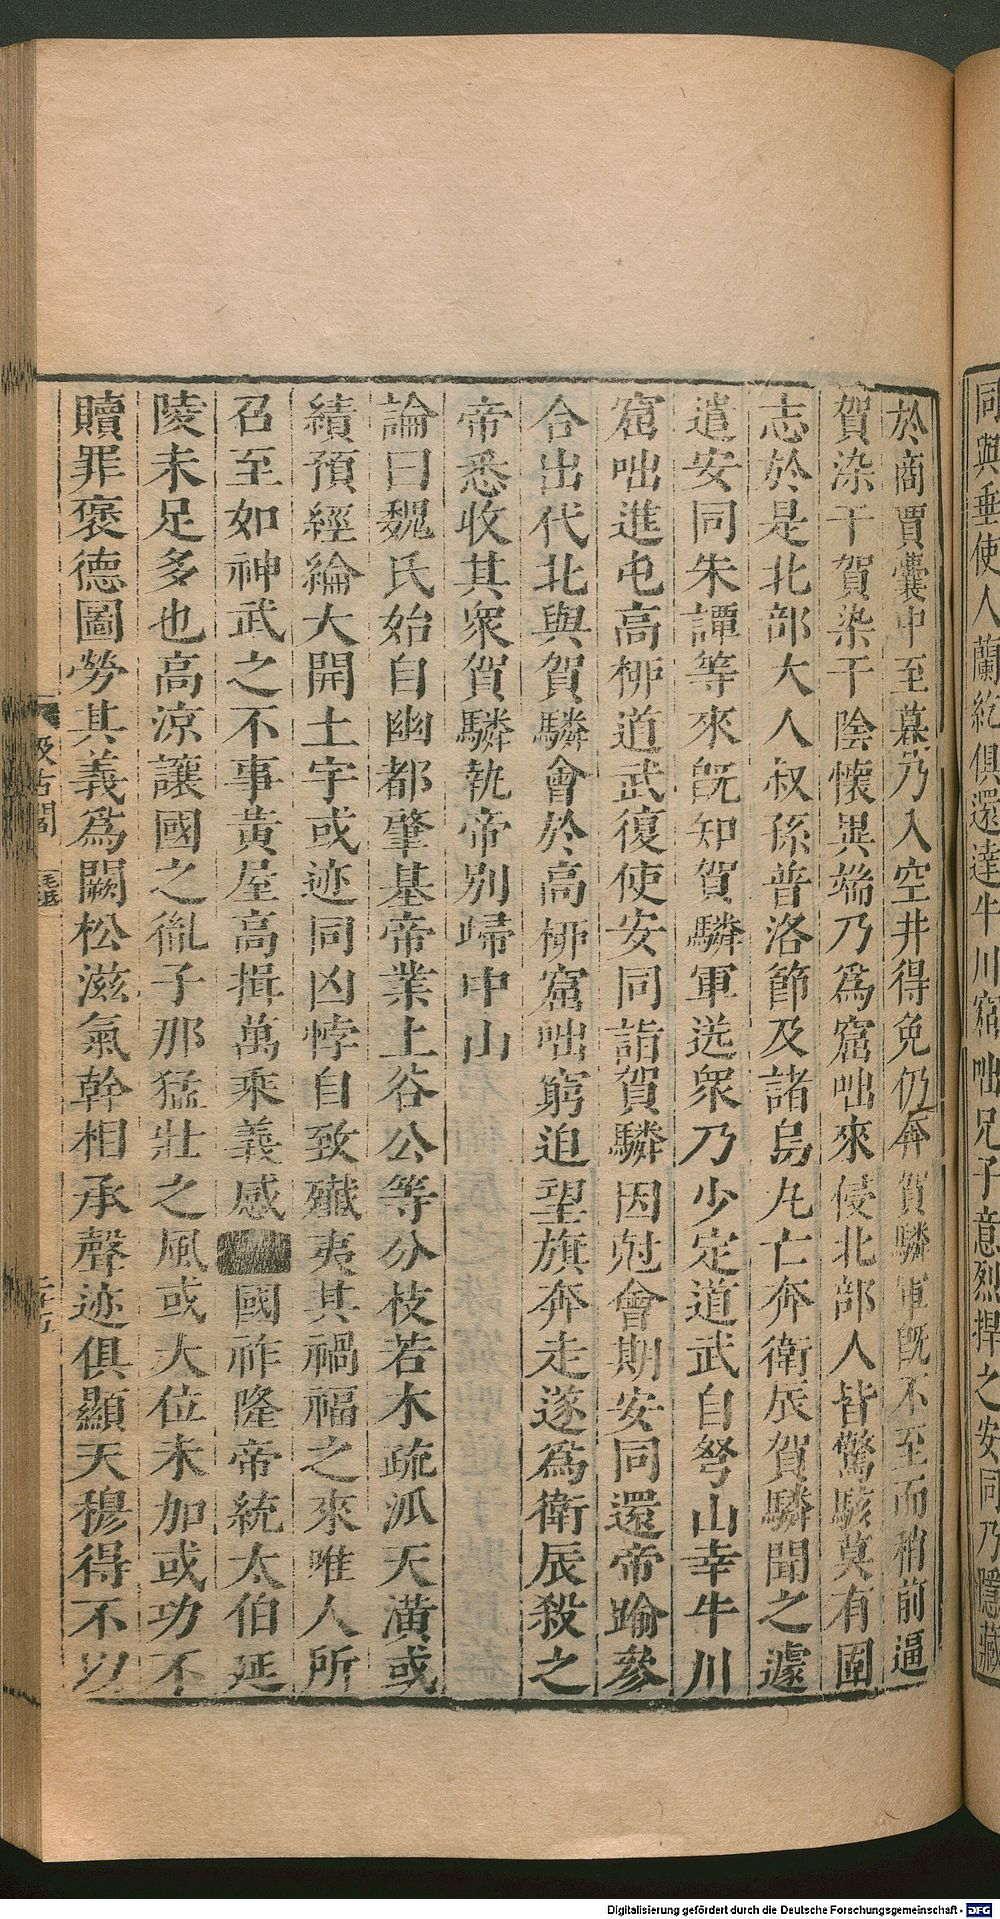 同與垂使人蘭紇俱還達牛川窟咄兄子意烈捍之安同乃隱藏
於商賈囊中至暮乃入空井得免仍奔賀驎軍旣不至而稍前逼
賀染干賀染干陰懷異端乃爲窟咄來侵北部人皆驚駭莫有固
志於是北部大人叔孫普洛節及諸烏丸亡奔衛辰賀驎聞之遽
遣安同朱譚等來旣知賀驎軍近衆乃少定道武自弩山幸牛川
窟咄進屯高柳道武復使安同詣賀驎因尅會期安同還帝踰參
合出代北與賀驎會於高柳窟咄窮迫望旗奔走遂爲衛辰殺之
帝悉收其衆賀驎執帝別歸中山
論曰魏氏始自幽都肇基帝業上谷公等分枝若木疏派天潢或
績預經綸大開土宇或迹同凶悖自致殲夷其禍福之來唯人所
召至如神武之不事黃屋高揖萬乘義感國祚隆帝統太伯延
陵未足多也高涼讓國之胤子那猛壯之風或大位未加或功不
贖罪褒德圖勞其義爲闕松滋氣幹相承聲迹俱顯天穆得不以
汲古閣
毛氏
Digitalisierung gefördert durch die Deutsche Forschungsgemeinschaft - DFG